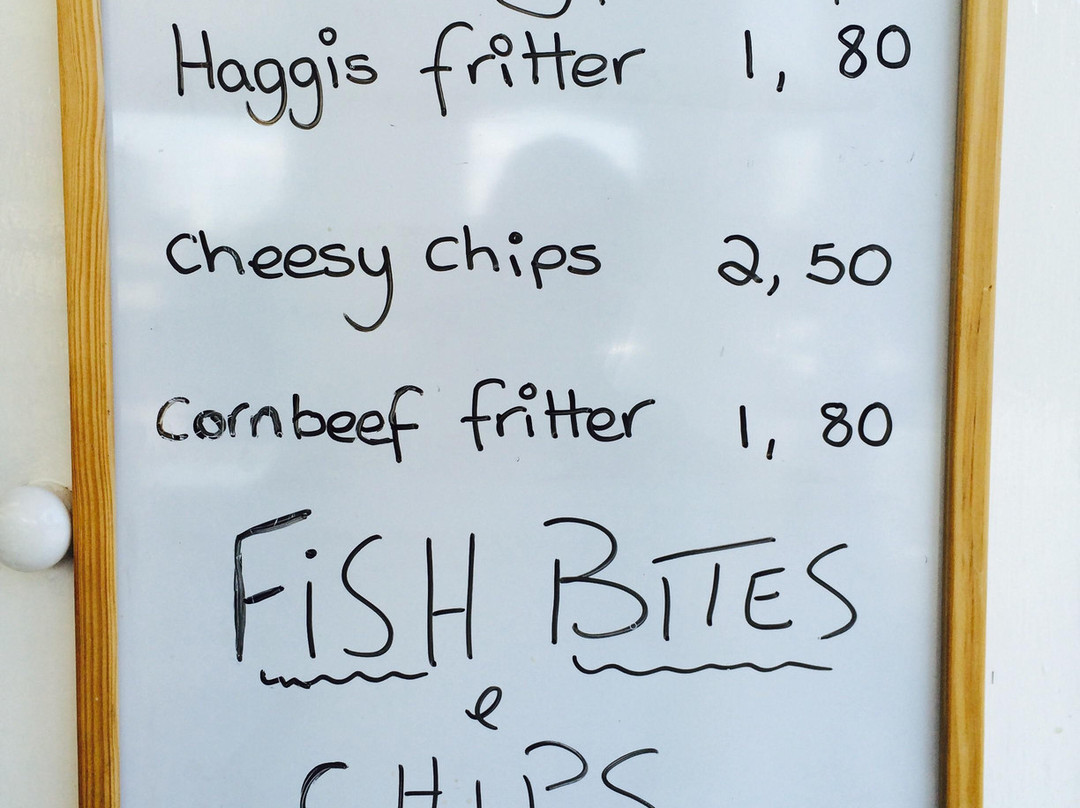 Haggis fritter 1, 80
Cheesy chips 2, 50
Cornbeef fritter 1, 80
FiSH BiTES
e
CHiPS